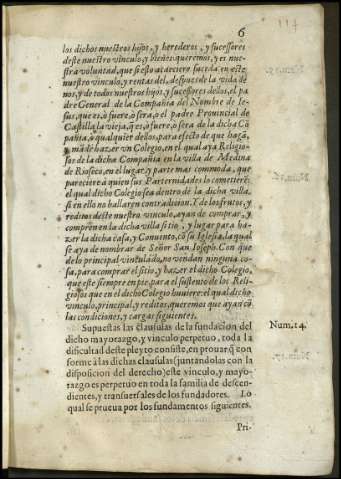 117
6
los dichos nuestros hijos, y herederos, y sucessores
deste nuestro vinculo, y bienes queremos, y es nue-
stra voluntad, que si esto acaeciere suceda en este
nuestro vinculo, y rentas del, despues de la vida de
nos, y de todos nuestros hijos, y sucessores dellos, el pa
dre General de la Compañia del Nombre de Ie-
sus, que es, ò fuere, ò sera, o el padre Prouincial de
Castilla la vieja, q̃ es, ò fuere, ò sera de la dicha Cõ
pañia, ò qualquier dellos, para efeto de que hagã,
y mãdẽ hazer vn Colegio, en el qual aya Religio-
sos de la dicha Compañia en la villa de Medina
de Rioseco, en el lugar, y parte mas commoda, que
pareciere à quien sus Paternidades lo cometierẽ:
el qual dicho Colegio sea dentro dè la dicha villa,
si en ello no hallaren contradicion. Y de los frutos, y
reditos deste nuestro vinculo, ayan de comprar, y
compren en la dicha villa sitio, y lugar para ha-
zer la dicha casa, y Conuento, cõ su Iglesia, la qual
se aya de nombrar de Señor San Ioseph. Con que
de lo principal vinculado, no vendan ninguna co-
sa, para comprar el sitio, y hazer el dicho Colegio,
que este siempre en pie, para el sustento de los Reli-
giosos que en el dicho Colegio huuiere: el qual dicho
vinculo, principal, y reditos queremos que ayan cõ
las condiciones, y cargas siguientes.
Supuestas las clausulas de la fundacion del
Num. 14.
dicho mayorazgo, y vinculo perpetuo, toda la
dificultad deste pleyto consiste, en prouar q̃ con
forme à las dichas clausulas (juntandolas con la
disposicion del derecho) este vinculo, y mayo-
razgo es perpetuo en toda la familia de descen-
dientes, y transuersales de los fundadores. Lo
qual se prueua por los fundamentos siguientes.
Pri-